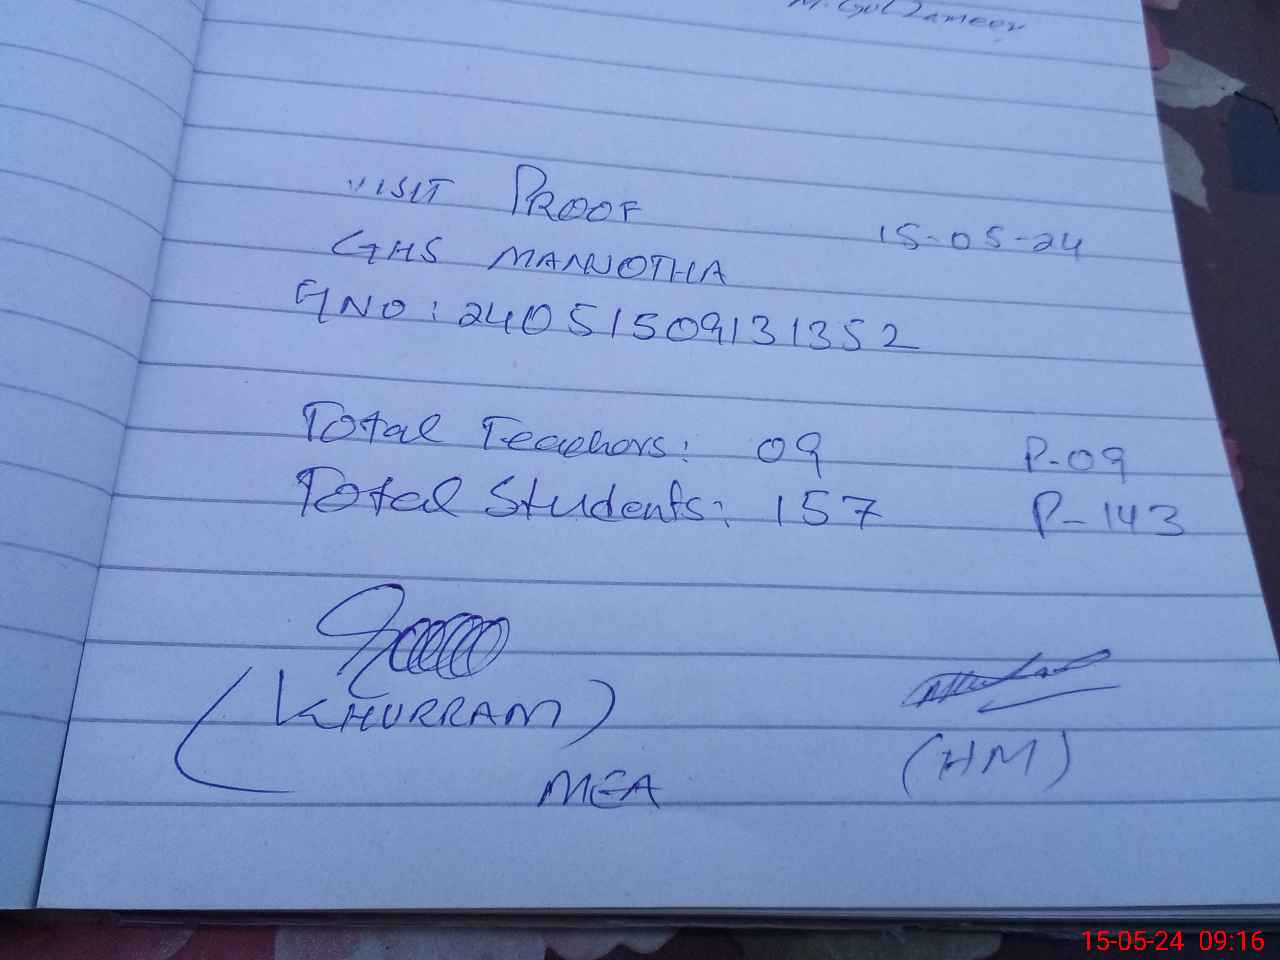 VISIT PROOF
15-05-24
GHS MANNOTHA
GNO: 24051509131352
Total Teachers: 09 P-09
Total Students: 157 P-143
(KHURRAM)
MEA
(HM)
15-05-24 09:16